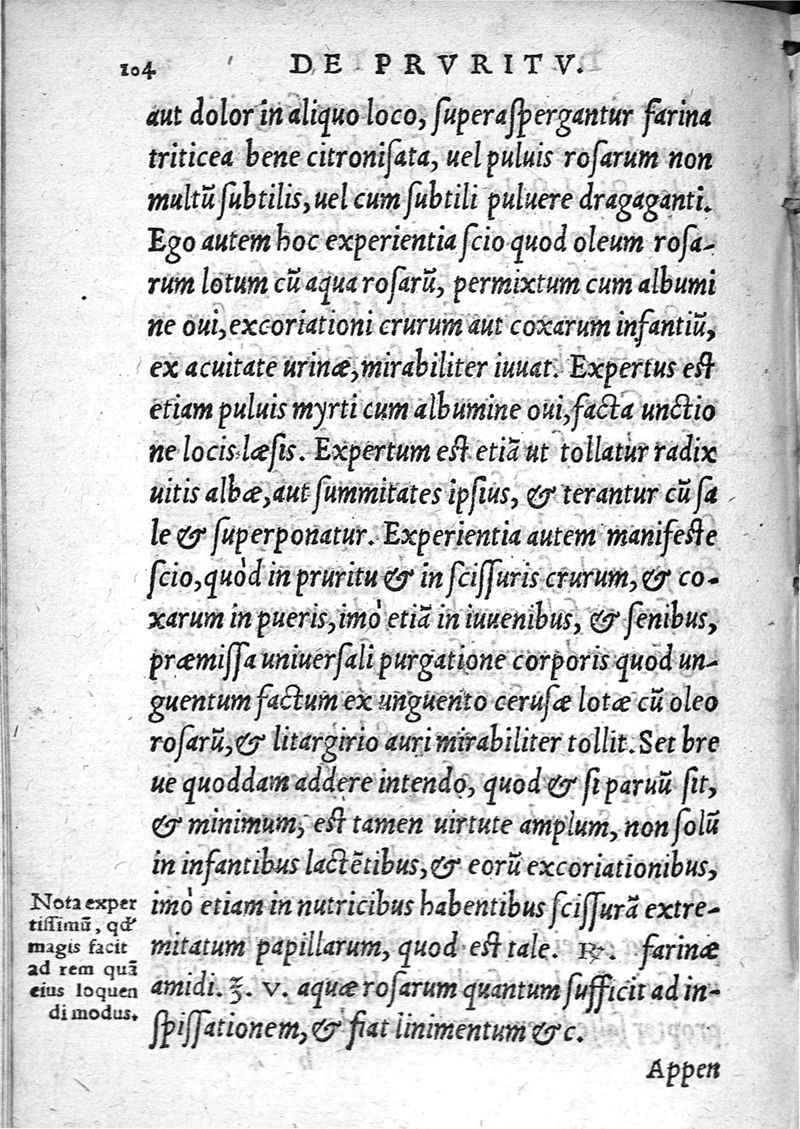 104
DE PRVRITV.
aut dolor in aliquo loco, ſuperaſpergantur farina
triticea bene citroniſata, uel puluis roſarum non
multū ſubtilis, uel cum ſubtili puluere dragaganti.
Ego autem hoc experientia ſcio quod oleum roſa-
rum lotum cū aqua roſarū, permixtum cum albumi
ne oui, excoriationi crurum aut coxarum infantiū,
ex acuitate urinæ, mirabiliter iuuat. Expertus eſt
etiam puluis myrti cum albumine oui, facta unctio
ne locis læſis. Expertum eſt etiā ut tollatur radix
uitis albæ, aut ſummitates ipſius, & terantur cū ſa
le & ſuperponatur. Experientia autem manifeſte
ſcio, quòd in pruritu & in ſciſſuris crurum, & co-
xarum in pueris, imò etiā in iuuenibus, & ſenibus,
præmiſſa uniuerſali purgatione corporis quod un-
guentum factum ex unguento ceruſæ lotæ cū oleo
roſarū, & litargirio auri mirabiliter tollit. Set bre
ue quoddam addere intendo, quod & ſi paruū ſit,
& minimum, eſt tamen uirtute amplum, non ſolū
in infantibus lactētibus, & eorū excoriationibus,
imò etiam in nutricibus habentibus ſciſſurā extre-
mitatum papillarum, quod eſt tale. ℞. farinæ
amidi. ʒ. v. aquæ roſarum quantum ſufficit ad in-
ſpiſſationem, & fiat linimentum & c.
Nota exper
tiſſimū, qđ
magis facit
ad rem quā
eius loquen
di modus.
Appen